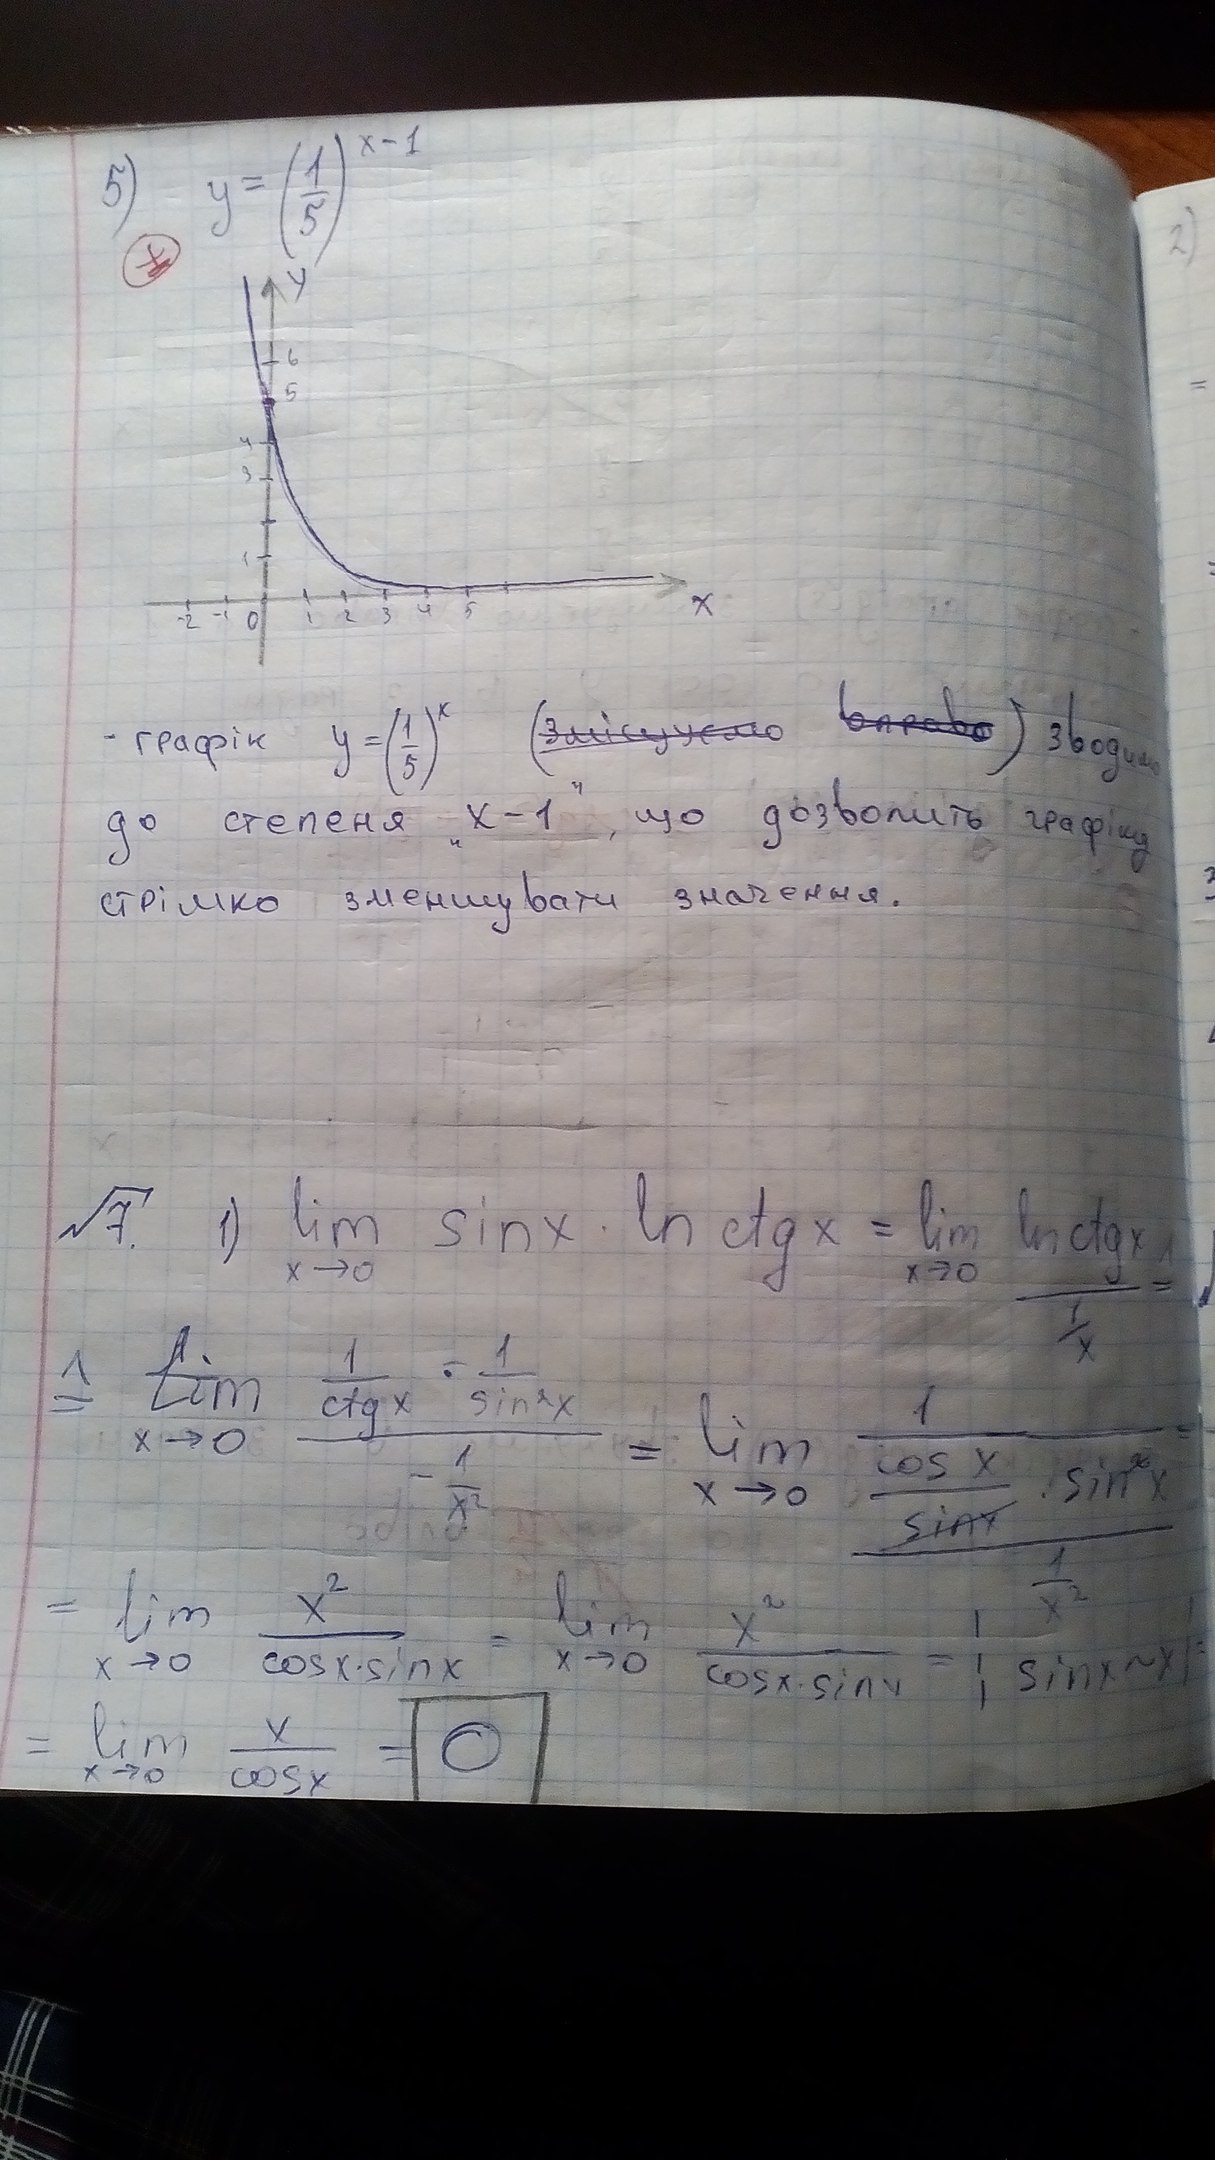 5) y = (1/5)^(x-1)
y
6
5
4
3
1
-2 -1 0 1 2 3 4 5 x
- графік y = (1/5)^x (зміщуємо вправо) зводимо
до степеня "x-1", що дозволить графіку
стрімко зменшувати значення.
√7. 1) lim x→0 sinx · ln ctgx = lim x→0 ln ctgx / (1/x) =
≙ lim x→0 (1/ctgx · 1/sin²x) / (-1/x²) = lim x→0 (1 / (cosx/sinx · sin²x)) / (1/x²) =
= lim x→0 x²/(cosx·sinx) = lim x→0 x²/(cosx·sinx) = | sinx~x | =
= lim x→0 x/cosx = 0
2)
=